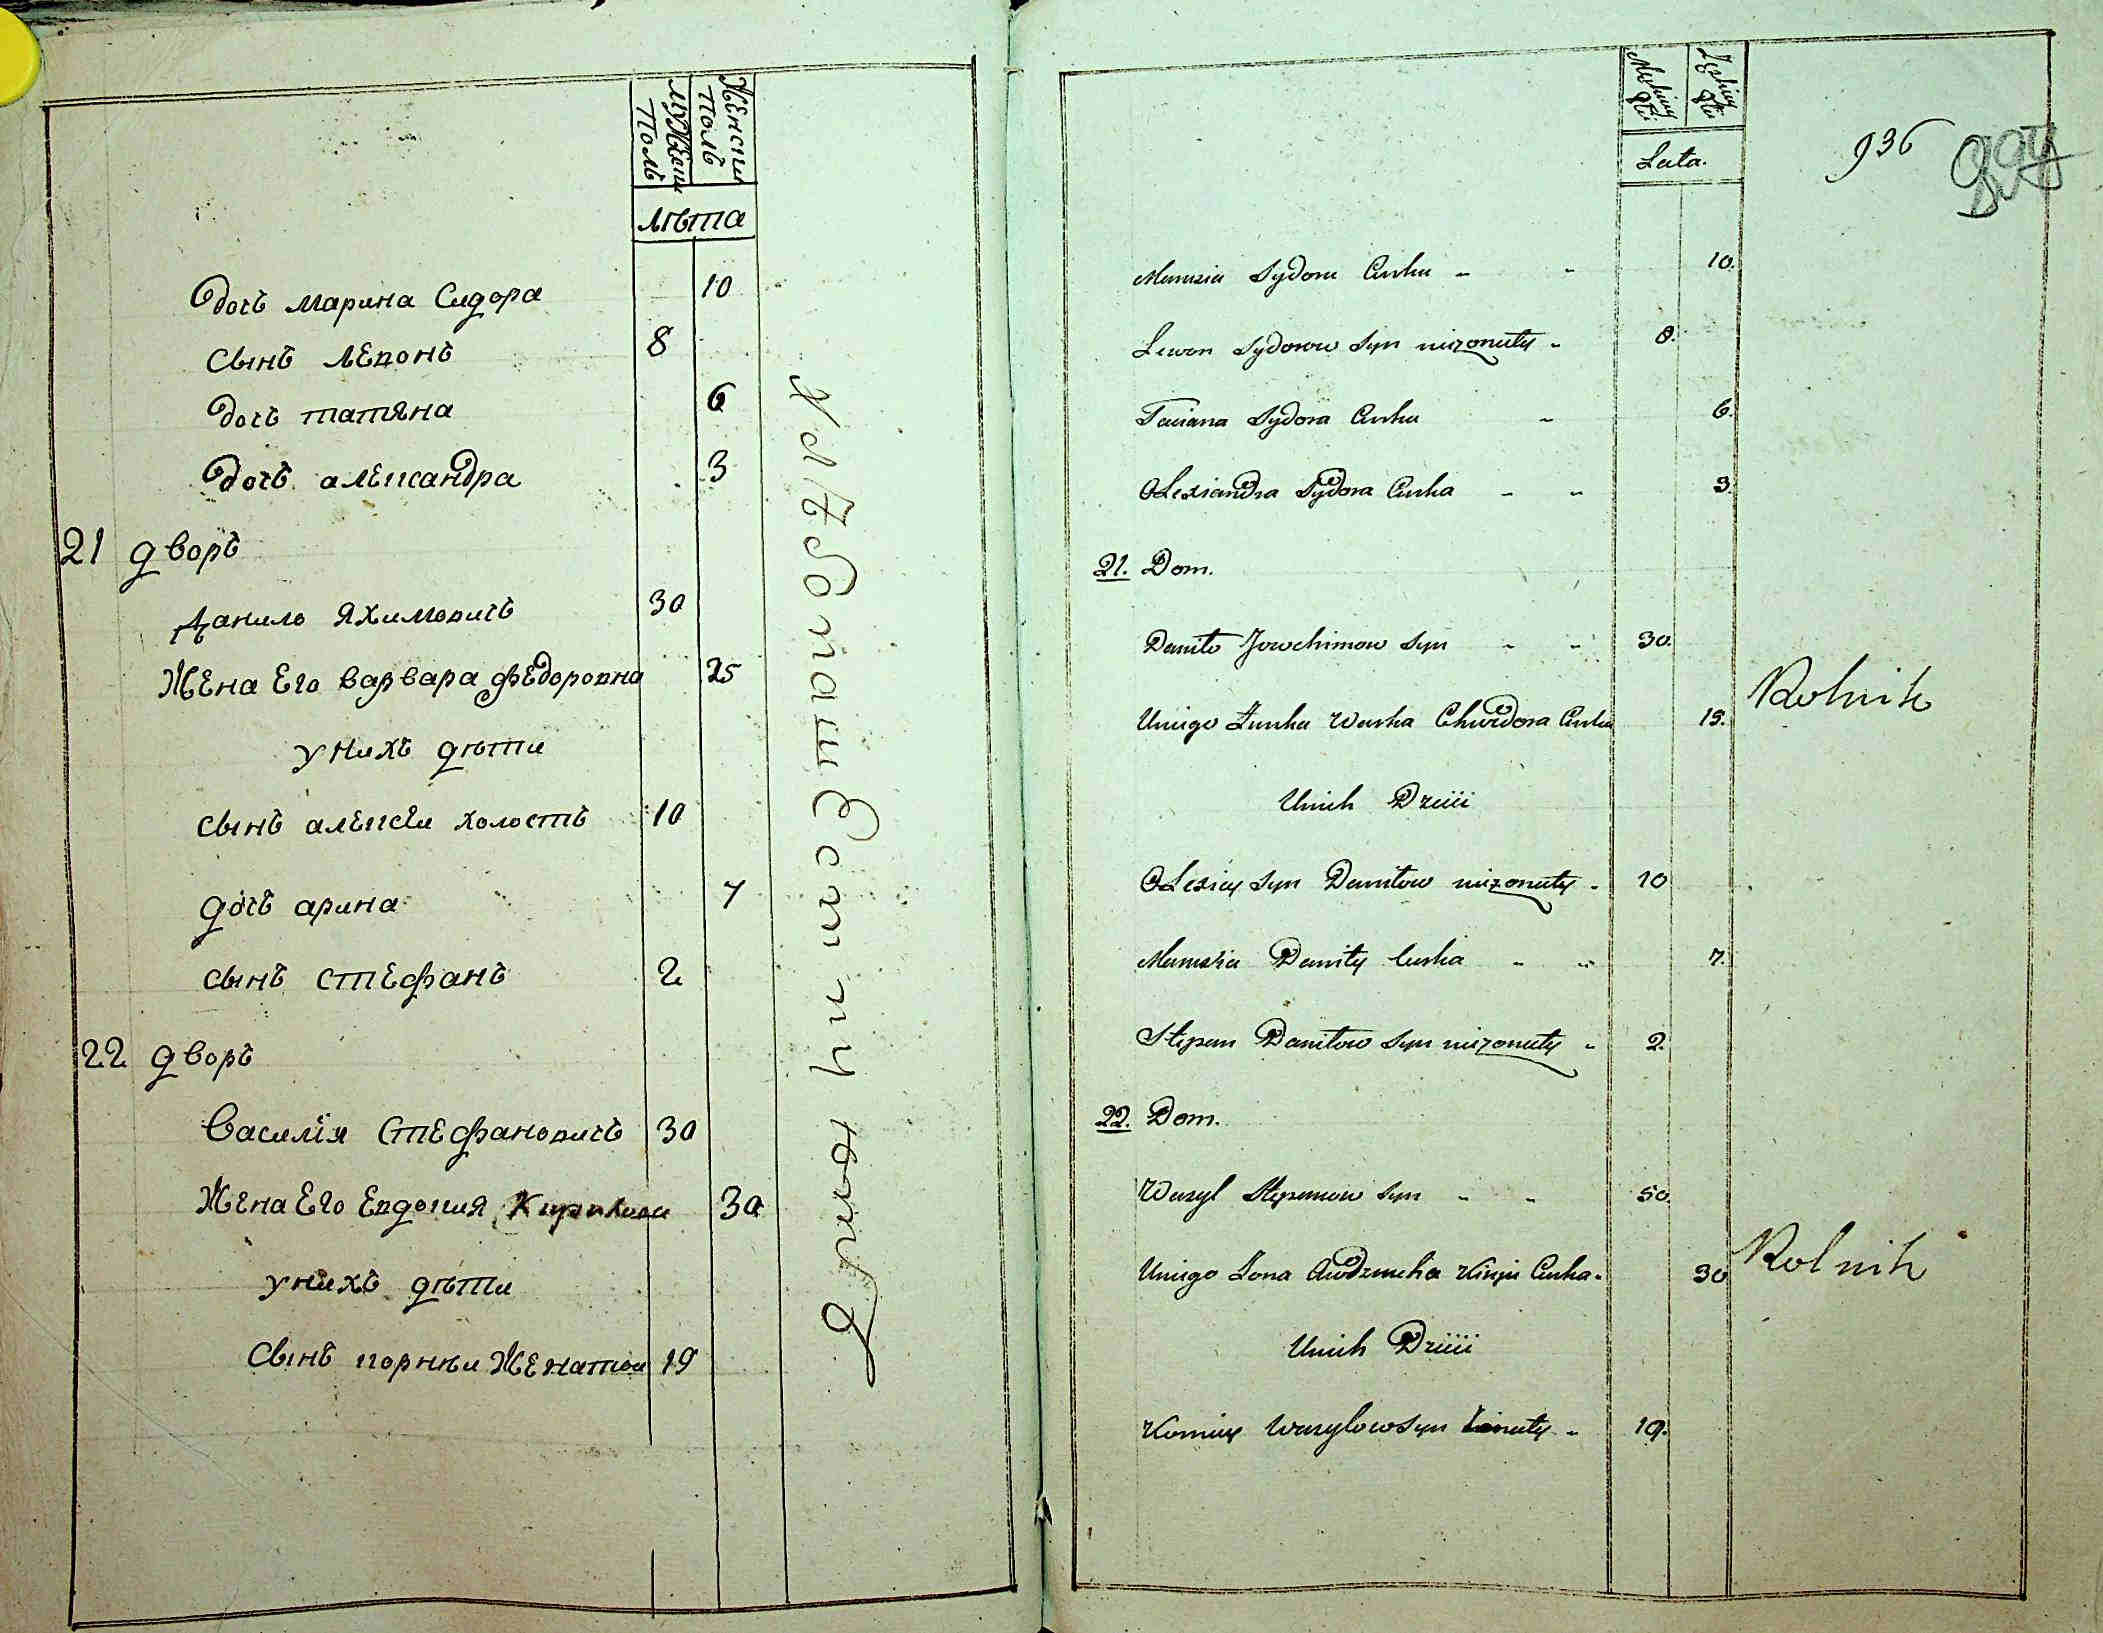 Мужески Полъ
Женски Полъ
лѣта
дочъ марина Сидора 10
сынъ левонъ 8
дочъ татяна 6
дочъ александра 3
21 дворъ
Данило Яхимовичъ 30
Жена Его варвара федоровна 25
у нихъ дѣти
сынъ алексѣи холостъ 10
дочъ арина 7
сынъ стефанъ 2
22 дворъ
Василія Стефановичъ 30
Жена Его Евдокия 30
у нихъ дѣти
Сынъ корнѣи Женатои 19
Хлѣбопашест
Lata.
936
Marusia Sydora Curka - - 10.
Lewon Sydorow Syn niezonuty - 8.
Taciana Sydora Curka - 6.
OLexiandra Sydora Curka - - 3.
21. Dom.
Daniło Jowchimow Syn - - 30.
Uniego Żunka Warka Chwiedora Curka 15.
Rolnik
Unich Dzicii
OLexiey Syn Daniłow niezonuty - 10
Marusia Daniły Curka - - 7.
Stepan Daniłow Syn niezonuty - 2.
22. Dom.
Wasyl Stepanow Syn - - 50.
Uniego Żona Awdzucha Curka - 30
Rolnik
Unich Dzicii
Korniey Wasylow Syn żonuty - 19.